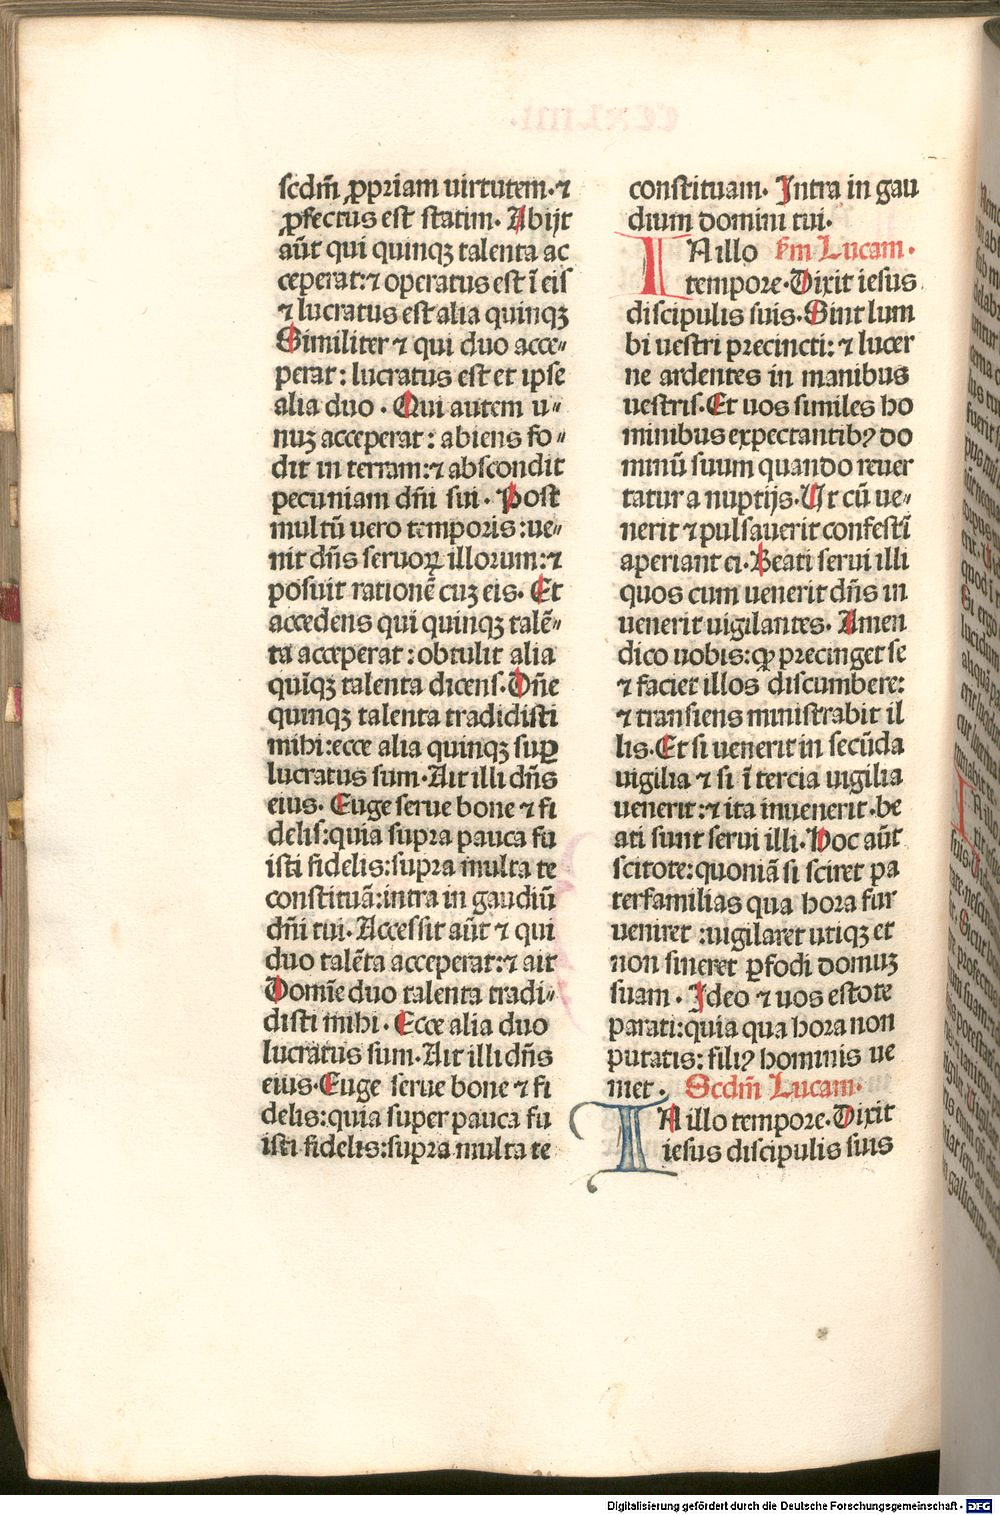 scdm̄ ꝓpriam uirtutem·⁊
ꝓfectus est statim· Abijt
aūt qui quinqꝫ talenta ac
ceperat:⁊ operatus est ī eis
⁊ lucratus est alia quinqꝫ
Similiter ⁊ qui duo acce-
perat: lucratus est et ipse
alia duo · Qui autem u-
nuꝫ acceperat: abiens fo-
dit in terram:⁊ abscondit
pecuniam dn̄i sui · Post
multū uero temporis: ue-
nit dn̄s seruoꝝ illorum:⁊
posuit rationē cuꝫ eis· Et
accedens qui quinqꝫ talē-
ta acceperat: obtulit alia
quīqꝫ talenta dicens· Dn̄e
quinqꝫ talenta tradidisti
mihi: ecce alia quinqꝫ suꝑ
lucratus sum· Ait illi dn̄s
eius· Euge serue bone ⁊ fi
delis: quia supra pauca fu
isti fidelis: supra multa te
constituā: intra in gaudiū
dn̄i tui· Accessit aūt ⁊ qui
duo talēta acceperat:⁊ ait
Domīe duo talenta tradi-
disti mihi · Ecce alia duo
lucratus sum· Ait illi dn̄s
eius· Euge serue bone ⁊ fi
delis: quia super pauca fu
isti fidelis: supra multa te
constituam· Intra in gau
dium domini tui·
IN illo fm Lucam·
tempore· Dixit iesus
discipulis suis· Sint lum
bi uestri precincti: ⁊ lucer
ne ardentes in manibus
uestris· Et uos similes ho
minibus expectantibꝰ do
minū suum quando reuer
tatur a nuptijs· Ut cū ue-
nerit ⁊ pulsauerit confestī
aperiant ei· Beati serui illi
quos cum uenerit dn̄s in
uenerit uigilantes· Amen
dico uobis: ꝙ precinget se
⁊ faciet illos discumbere:
⁊ transiens ministrabit il
lis· Et si uenerit in secūda
uigilia ⁊ si ī tercia uigilia
uenerit: ⁊ ita inuenerit· be
ati sunt serui illi· Hoc aūt
scitote: quoniā si sciret pa
terfamilias qua hora fur
ueniret : uigilaret utiqꝫ et
non sineret ꝑfodi domuꝫ
suam · Ideo ⁊ uos estote
parati: quia qua hora non
putatis: filiꝰ hominis ue
niet · Scdm̄ Lucam·
IN illo tempore· Dixit
iesus discipulis suis
Digitalisierung gefördert durch die Deutsche Forschungsgemeinschaft - DFG